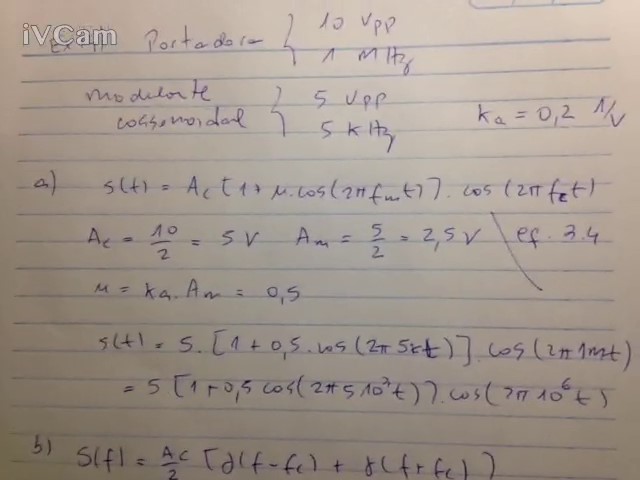 iVCam
Portadora } 10 Vpp
1 MHz
modelante } 5 Vpp
cossenoidal } 5 kHz
ka = 0,2 1/V
a) s(t) = Ac [1 + μ.cos(2πfmt)] . cos(2πfct)
Ac = 10/2 = 5 V Am = 5/2 = 2,5 V ef. 3.4
μ = ka.Am = 0,5
s(t) = 5. [1 + 0,5.cos(2π5kt)] . cos(2π1Mt)
= 5 [1+0,5 cos(2π5 10³t)] . cos(2π10⁶t)
b) S(f) = Ac/2 [δ(f-fc) + δ(f+fc)]